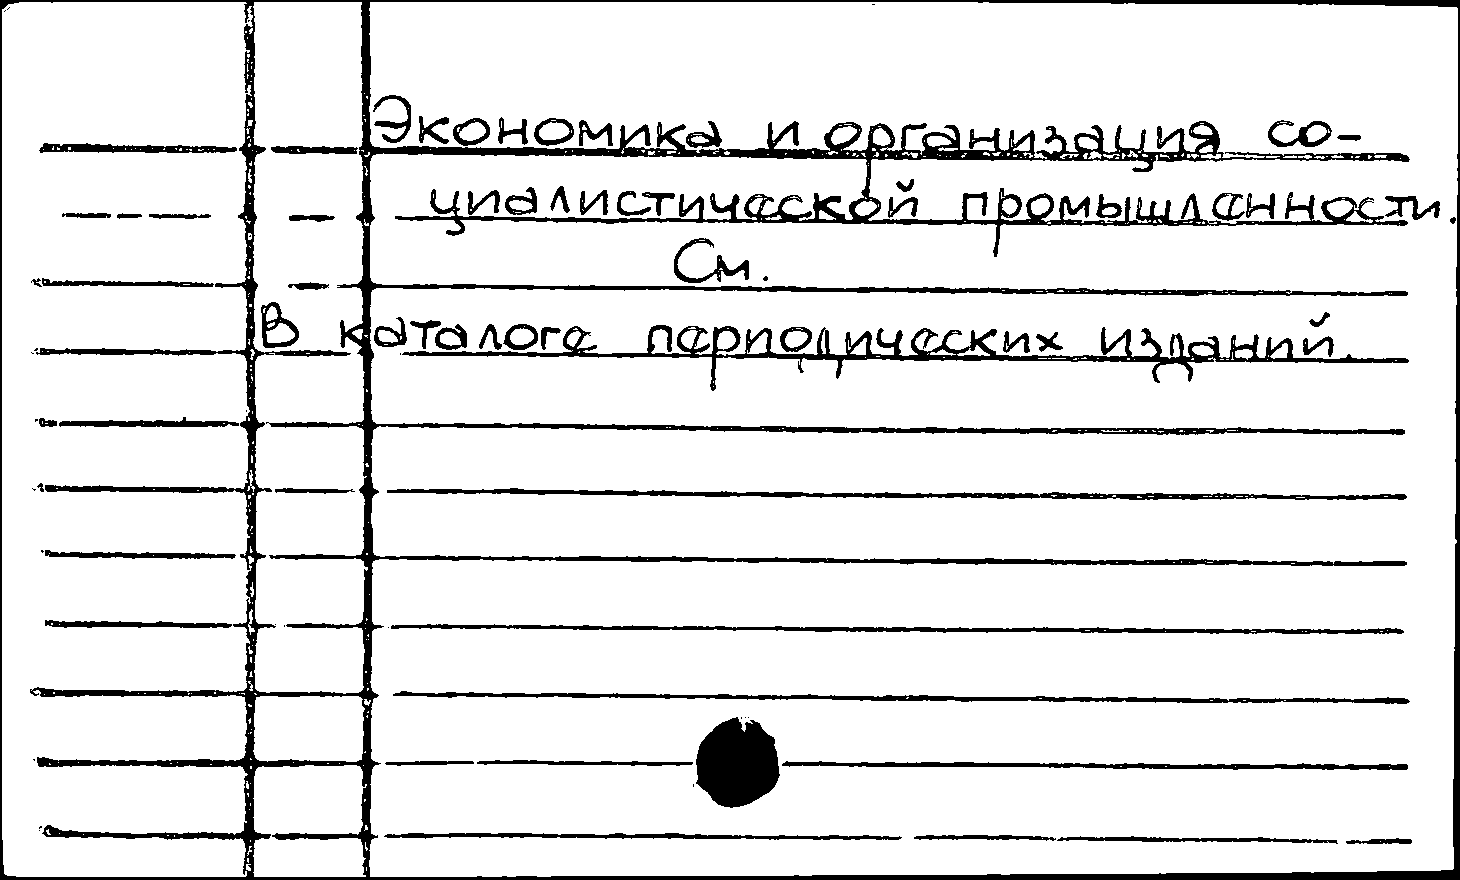 Экономика и организация со-
циалистической промышленности.
См.
В каталоге периодических изданий.